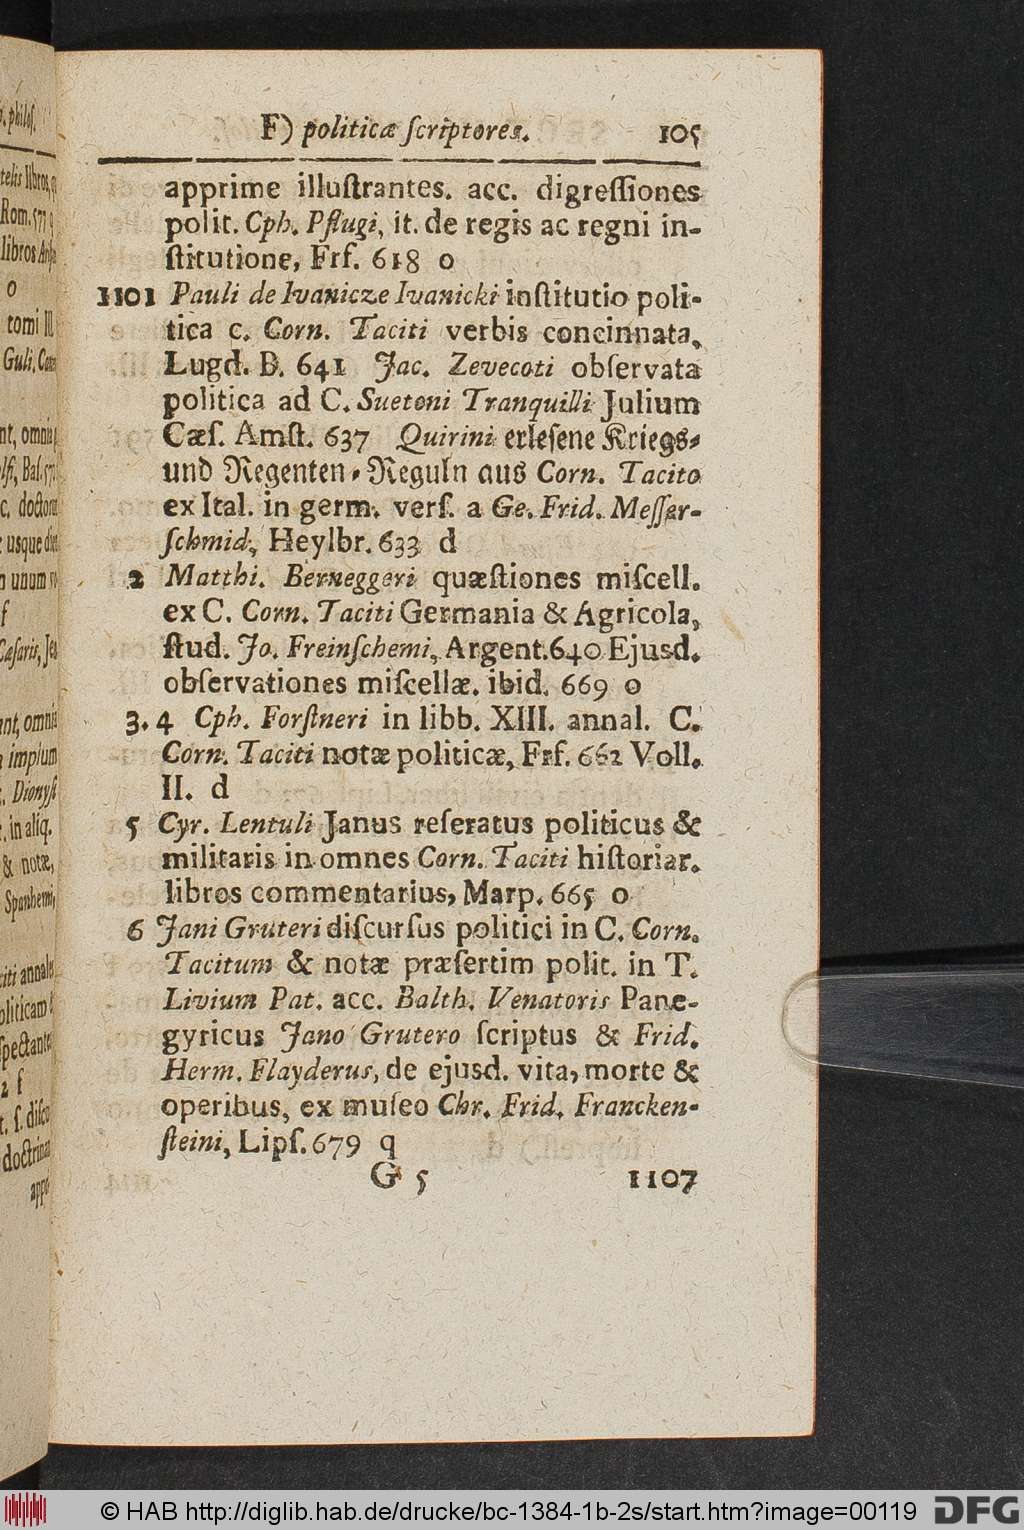 F) politicæ ſcriptores. 105
apprime illuſtrantes. acc. digreſſiones
polit. Cph. Pflugi, it. de regis ac regni in-
ſtitutione, Frf. 618 o
1101 Pauli de Ivanicze Ivanicki inſtitutio poli-
tica c. Corn. Taciti verbis concinnata,
Lugd. B. 641 Jac. Zevecoti obſervata
politica ad C. Suetoni Tranquilli Julium
Cæſ. Amſt. 637 Quirini erleſene Kriegs-
und Regenten-Reguln aus Corn. Tacito
ex Ital. in germ. verſ. a Ge. Frid. Meſſer-
ſchmid, Heylbr. 633 d
2 Matthi. Berneggeri quæſtiones miſcell.
ex C. Corn. Taciti Germania & Agricola,
ſtud. Jo. Freinſchemi, Argent. 640 Ejusd.
obſervationes miſcellæ. ibid. 669 o
3. 4 Cph. Forſtneri in libb. XIII. annal. C.
Corn. Taciti notæ politicæ, Frf. 662 Voll.
II. d
5 Cyr. Lentuli Janus reſeratus politicus &
militaris in omnes Corn. Taciti hiſtoriar.
libros commentarius, Marp. 665 o
6 Jani Gruteri diſcurſus politici in C. Corn.
Tacitum & notæ præſertim polit. in T.
Livium Pat. acc. Balth. Venatoris Pane-
gyricus Jano Grutero ſcriptus & Frid.
Herm. Flayderus, de ejusd. vita, morte &
operibus, ex muſeo Chr. Frid. Francken-
ſteini, Lipſ. 679 q
G 5 1107
© HAB http://diglib.hab.de/drucke/bc-1384-1b-2s/start.htm?image=00119 DFG